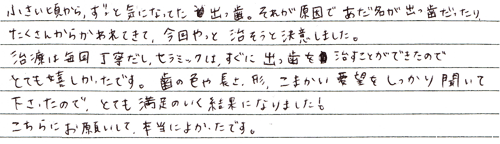 小さい頃から、ずっと気になってた出っ歯。それが原因であだ名が出っ歯だったり、
たくさんからかわれてきて、今回やっと治そうと決意しました。
治療は毎回丁寧だし、セラミックは、すぐに出っ歯を治すことができたので
とても嬉しかったです。歯の色や長さ、形、こまかい要望をしっかり聞いて
下さったので、とても満足のいく結果になりました!
こちらにお願いして、本当によかったです。